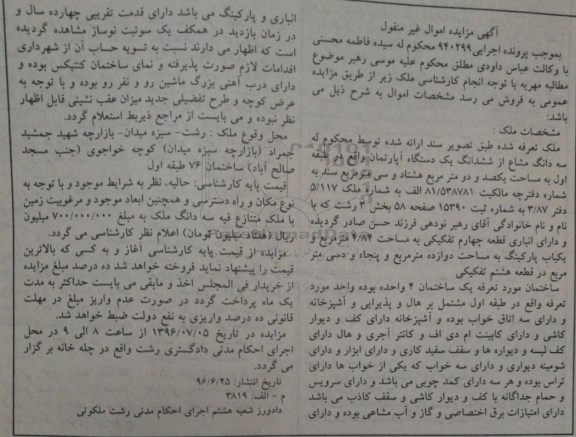 آگهی مزایده اموال غیر منقول
بموجب پرونده اجرایی ۹۴۰۲۹۹ محکوم له سیده فاطمه محسنی
با وکالت عباس داودی مطلق محکوم علیه موسی رهبر موضوع
مطالبه مهریه با توجه انجام کارشناسی ملک زیر از طریق مزایده
عمومی به فروش می رسد مشخصات اموال به شرح ذیل می
باشد:
مشخصات ملک :
ملک تعرفه شده طبق تصویر سند ارائه شده توسط محکوم له
سه دانگ مشاع از ششدانگ یک دستگاه آپارتمان واقع در طبقه
اول به مساحت یکصد و دو متر مربع هشتاد و سی مترمربع سند به
شماره دفترچه مالکیت ۸۱/۵۳۸۷۸۱ الف به شماره ملک ۵/۱۱۷
دفتر ۳/۸۷ به شماره ثبت ۱۵۳۹۰ صفحه ۵۸ بخش ۳ رشت که با
نام و نام خانوادگی آقای رهبر نودهی فرزند حسن صادر گردیده
و دارای انباری قطعه چهارم تفکیکی به مساحت ۴/۸۴ مترمربع و
یکباب پارکینگ به مساحت دوازده مترمربع و پنجاه و دسی متر
مربع در قطعه هشتم تفکیکی
ساختمان مورد تعرفه یک ساختمان ۴ واحده بوده واحد مورد
تعرفه واقع در طبقه اول مشتمل بر هال و پذیرایی و آشپزخانه
و دارای سه اتاق خواب بوده و آشپزخانه دارای کف و دیوار
کاشی و دارای کابینت ام دی اف و کانتر آجری و هال دارای
کف لیسه و دیواره ها و سقف سفید کاری و دارای ابزار و دارای
شومینه دیواری و دارای سه خواب که یکی از خواب ها دارای
تراس بوده و هر سه دارای کمد چوبی می باشد و دارای سرویس
و حمام جداگانه با کف و دیوار کاشی و سقف کاذب می باشد
دارای امتیازات برق اختصاصی و گاز و آب مشاعی بوده و دارای
انباری و پارکینگ می باشد دارای قدمت تقریبی چهارده سال و
در زمان بازدید در همکف یک سوئیت نوساز مشاهده گردیده
است که اظهار می دارند نسبت به تسویه حساب آن از شهرداری
اقدامات لازم صورت پذیرفته و نمای ساختمان کنتیکس بوده و
دارای درب آهنی بزرگ ماشین رو و نفر رو بوده و با توجه به
عرض کوچه و طرح تفضیلی جدید میزان عقب نشینی قابل اظهار
نظر نبوده و می بایست از مراجع ذیربط استعلام گردد.
محل وقوع ملک : رشت- سبزه میدان- بازارچه شهید جمشید
جمراد (بازارچه سبزه میدان) کوچه خواجوی (جنب مسجد
صالح آباد) ساختمان ۷۶ طبقه اول
قیمت پایه کارشناسی: حالیه، نظر به شرایط موجود و با توجه به
نوع مکان و راه دسترسی و همچنین ابعاد موجود و مرغوبیت زمین
با ملک متنازع فیه سه دانگ ملک به مبلغ ۷۰۰/۰۰۰/۰۰۰ میلیون
ریال (هفتاد میلیون تومان) اعلام نظر کارشناسی می گردد.
مزایده از قیمت پایه کارشناسی آغاز و به کسی که بالاترین
قیمت را پیشنهاد نماید فروخته خواهد شد ده درصد مبلغ مزایده
از خریدار فی المجلس اخذ و مابقی می بایست حداکثر به مدت
یک ماه پرداخت گردد در صورت عدم واریز مبلغ در مهلت
قانونی ده درصد واریزی به نفع دولت ضبط خواهد شد.
مزایده در تاریخ ۱۳۹۶/۰۷/۰۵ از ساعت ۸ الی ۹ در محل
اجرای احکام مدنی دادگستری رشت واقع در چله خانه بر گزار
می گردد.
تاریخ انتشار: ۹۶/۶/۲۵
م - الف: ۳۸۱۹
دادورز شعبه هشتم اجرای احکام مدنی رشت ملکوتی